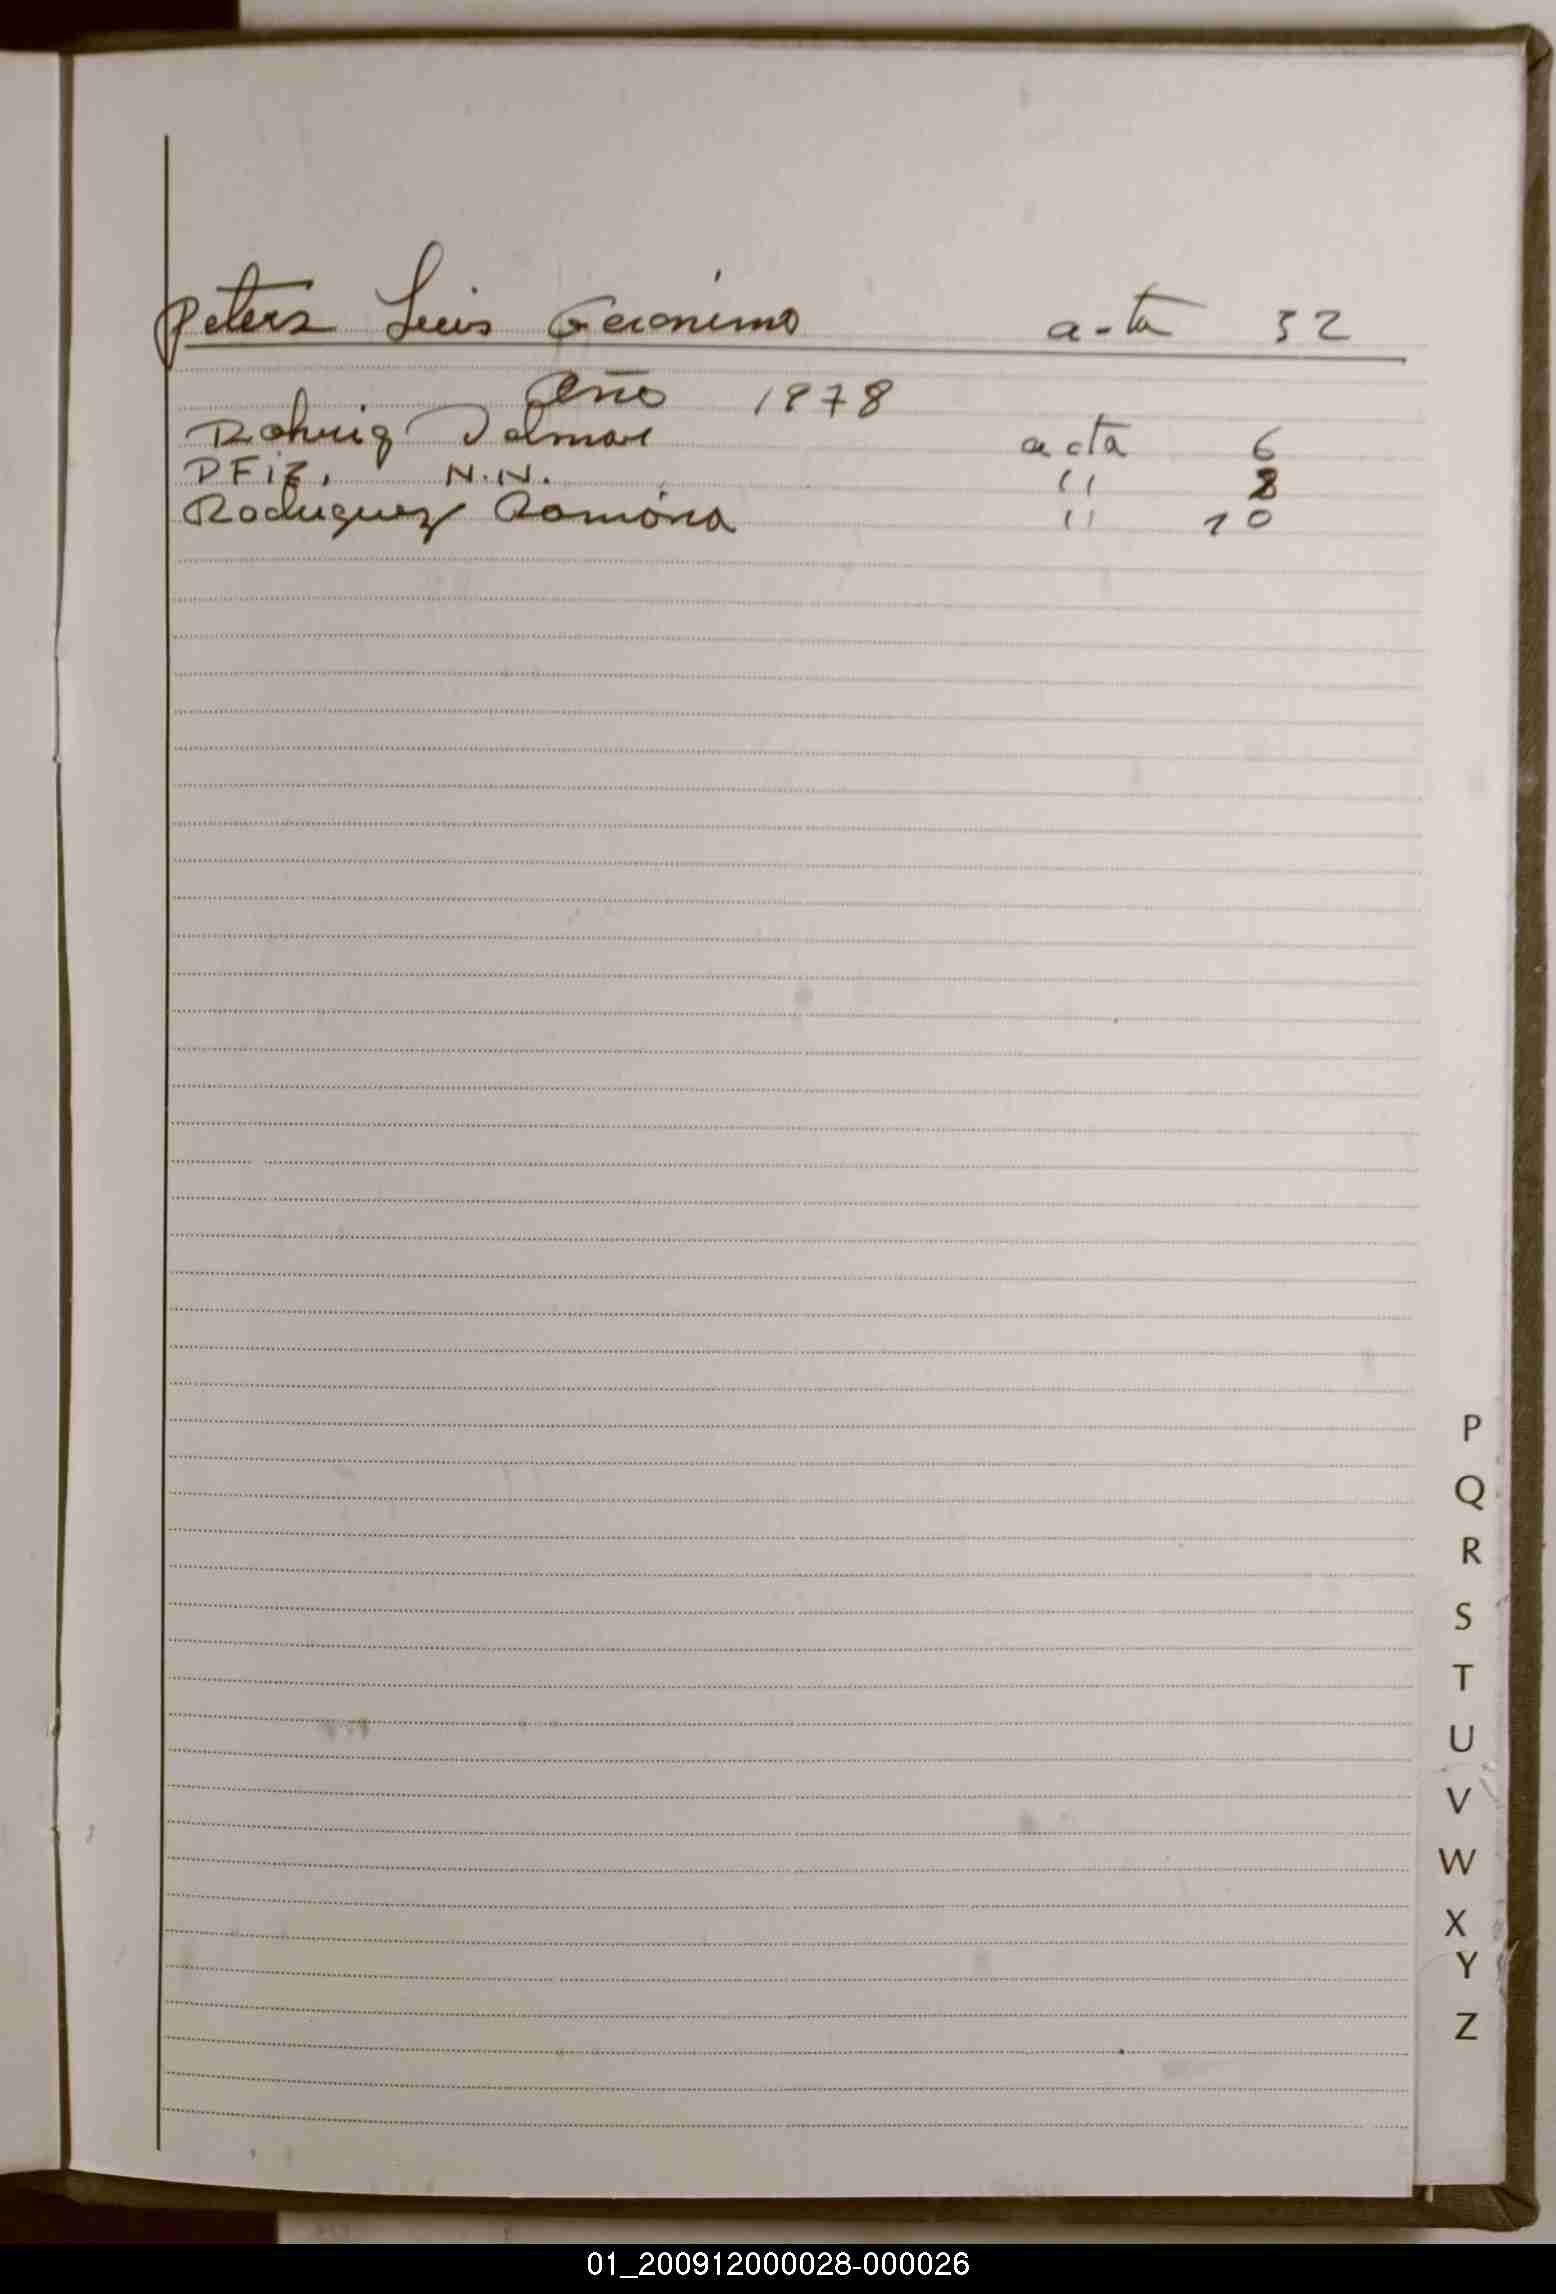 Peters Luis Gerónimo acta 32
Año 1878
Rohrig Delmar acta 6
PFiZ. N.N. " 8
Rodriguez Ramóna " 10
P
Q
R
S
T
U
V
W
X
Y
Z
01_200912000028-000026